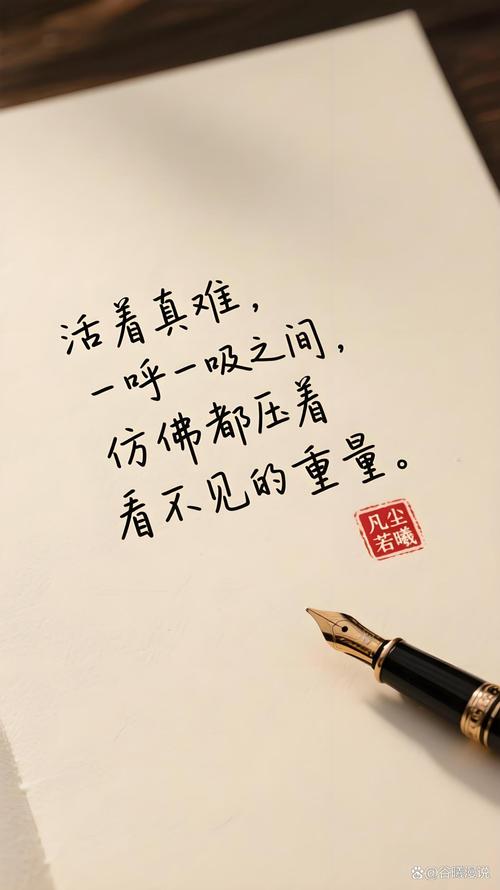 活着真难，
一呼一吸之间，
仿佛都压着
看不见的重量。
凡尘
若曦